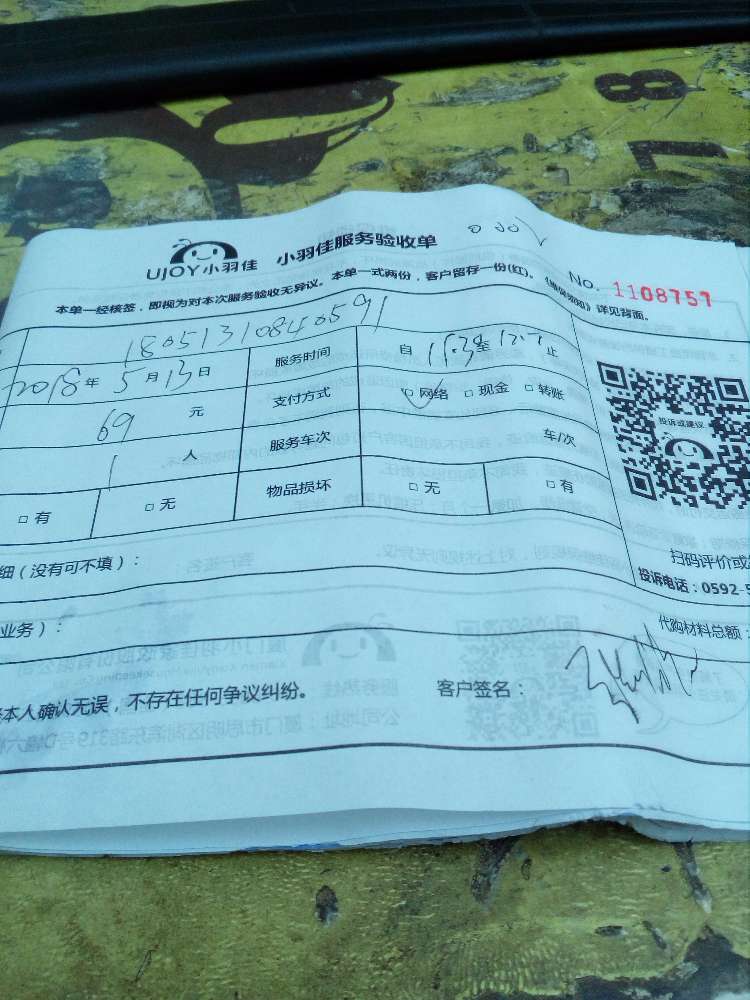 8
7
UJOY小羽佳 小羽佳服务验收单
No. 1108757
本单一经核签，即视为对本次服务验收无异议。本单一式两份，客户留存一份(红)。《维保须知》详见背面。
18051310840591
2018年5月13日 服务时间 自 11:39至 止
69 元 支付方式 ☑网络 □现金 □转账
1 人 服务车次 车/次
□有 □无 物品损坏 □无 □有
投诉或建议
扫码评价或
投诉电话：0592-5
细（没有可不填）：
业务）：
代购材料总额：
本人确认无误，不存在任何争议纠纷。 客户签名：